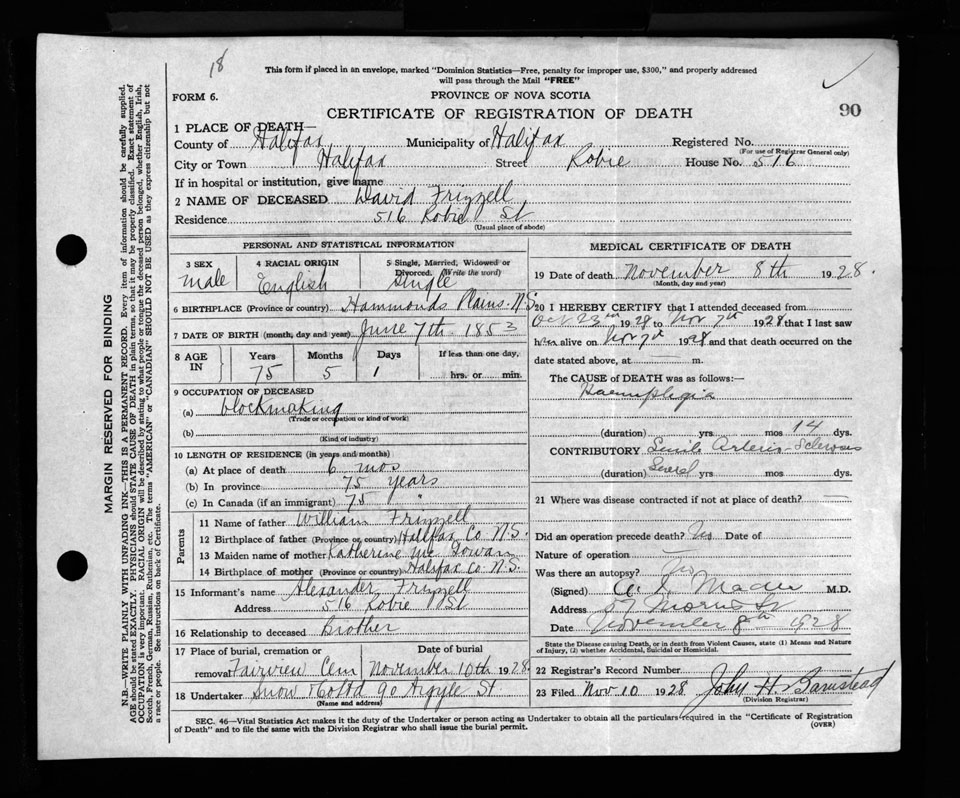 18
This form if placed in an envelope, marked "Dominion Statistics—Free, penalty for improper use, $300," and properly addressed
will pass through the Mail "FREE"
FORM 6.
PROVINCE OF NOVA SCOTIA
CERTIFICATE OF REGISTRATION OF DEATH
90
1 PLACE OF DEATH—
County of Halifax Municipality of Halifax Registered No.
(For use of Registrar General only)
City or Town Halifax Street Robie House No. 516
If in hospital or institution, give name
2 NAME OF DECEASED David Frizzell
Residence 516 Robie St
(Usual place of abode)
PERSONAL AND STATISTICAL INFORMATION
3 SEX
male
4 RACIAL ORIGIN
English
5 Single, Married, Widowed or
Divorced. (Write the word)
Single
6 BIRTHPLACE (Province or country) Hammonds Plains. N.S.
7 DATE OF BIRTH (month, day and year) June 7th 1853
8 AGE IN
Years
75
Months
5
Days
1
If less than one day,
hrs. or min.
9 OCCUPATION OF DECEASED
(a) blockmaking
(Trade or occupation or kind of work)
(b)
(Kind of industry)
10 LENGTH OF RESIDENCE (in years and months)
(a) At place of death 6 mos
(b) In province 75 years
(c) In Canada (if an immigrant) 75 "
Parents
11 Name of father William Frizzell
12 Birthplace of father (Province or country) Halifax Co. N.S.
13 Maiden name of mother Katherine Mc
14 Birthplace of mother (Province or country) Halifax co. N.S.
15 Informant's name Alexander Frizzell
Address 516 Robie St
16 Relationship to deceased Brother
17 Place of burial, cremation or
removal Fairview Cem
Date of burial
November 10th 1928
18 Undertaker Snow & Co Ltd 90 Argyle St
(Name and address)
MEDICAL CERTIFICATE OF DEATH
19 Date of death November 8th 1928.
(Month, day and year)
20 I HEREBY CERTIFY that I attended deceased from
Oct 23rd 1928 to Nov 7th 1928 that I last saw
him alive on Nov 7th 1928 and that death occurred on the
date stated above, at m.
The CAUSE of DEATH was as follows:—
Haemiplegia
(duration) yrs mos 14 dys.
CONTRIBUTORY Senile Arterio-Sclerosis
(duration) Several yrs mos dys.
21 Where was disease contracted if not at place of death?
Did an operation precede death? No Date of
Nature of operation
Was there an autopsy? No
(Signed) Mader M.D.
Address 57 Morris St
Date November 8th 1928
State the Disease causing Death, or in death from Violent Causes, state (1) Means and Nature
of Injury, (2) whether Accidental, Suicidal or Homicidal.
22 Registrar's Record Number
23 Filed Nov 10 1928 John H. Barnstead
(Division Registrar)
SEC. 46—Vital Statistics Act makes it the duty of the Undertaker or person acting as Undertaker to obtain all the particulars required in the "Certificate of Registration
of Death" and to file the same with the Division Registrar who shall issue the burial permit.
(OVER)
MARGIN RESERVED FOR BINDING
N.B.—WRITE PLAINLY WITH UNFADING INK—THIS IS A PERMANENT RECORD. Every item of information should be carefully supplied.
AGE should be stated EXACTLY. PHYSICIANS should STATE CAUSE OF DEATH in plain terms, so that it may be properly classified. Exact statement of
OCCUPATION is very important. RACIAL ORIGIN will be described by stating to what people or tongue the deceased person belonged, whether English, Irish,
Scotch, French, German, Russian, Ruthenian, etc. The terms "AMERICAN" or "CANADIAN" SHOULD NOT BE USED as they express citizenship but not
a race or people. See instructions on back of Certificate.